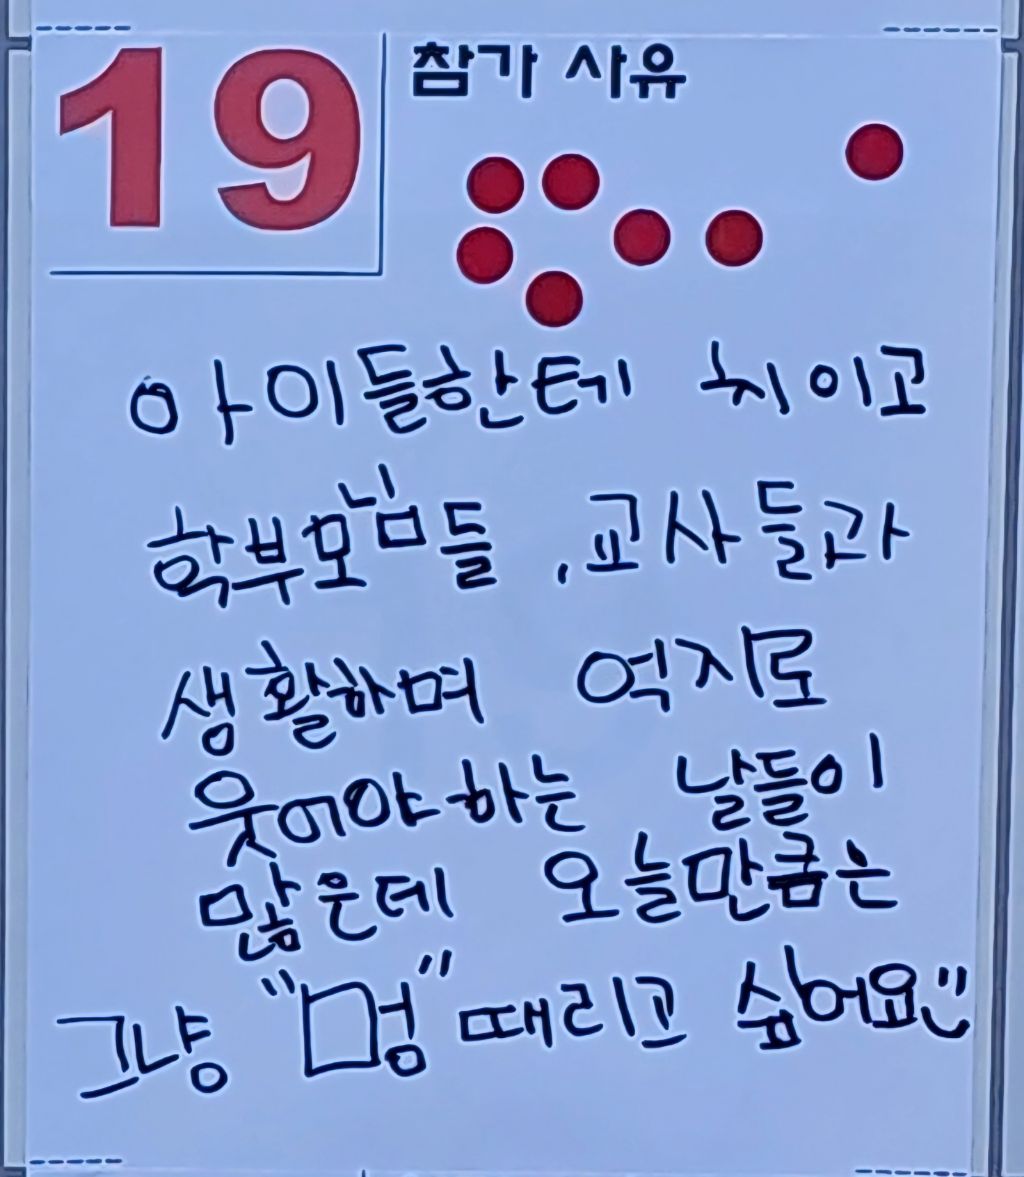 19
참가 사유
아이들한테 치이고
학부모님들, 교사들과
생활하며 억지로
웃어야하는 날들이
많은데 오늘만큼은
그냥 "멍" 때리고 싶어요"